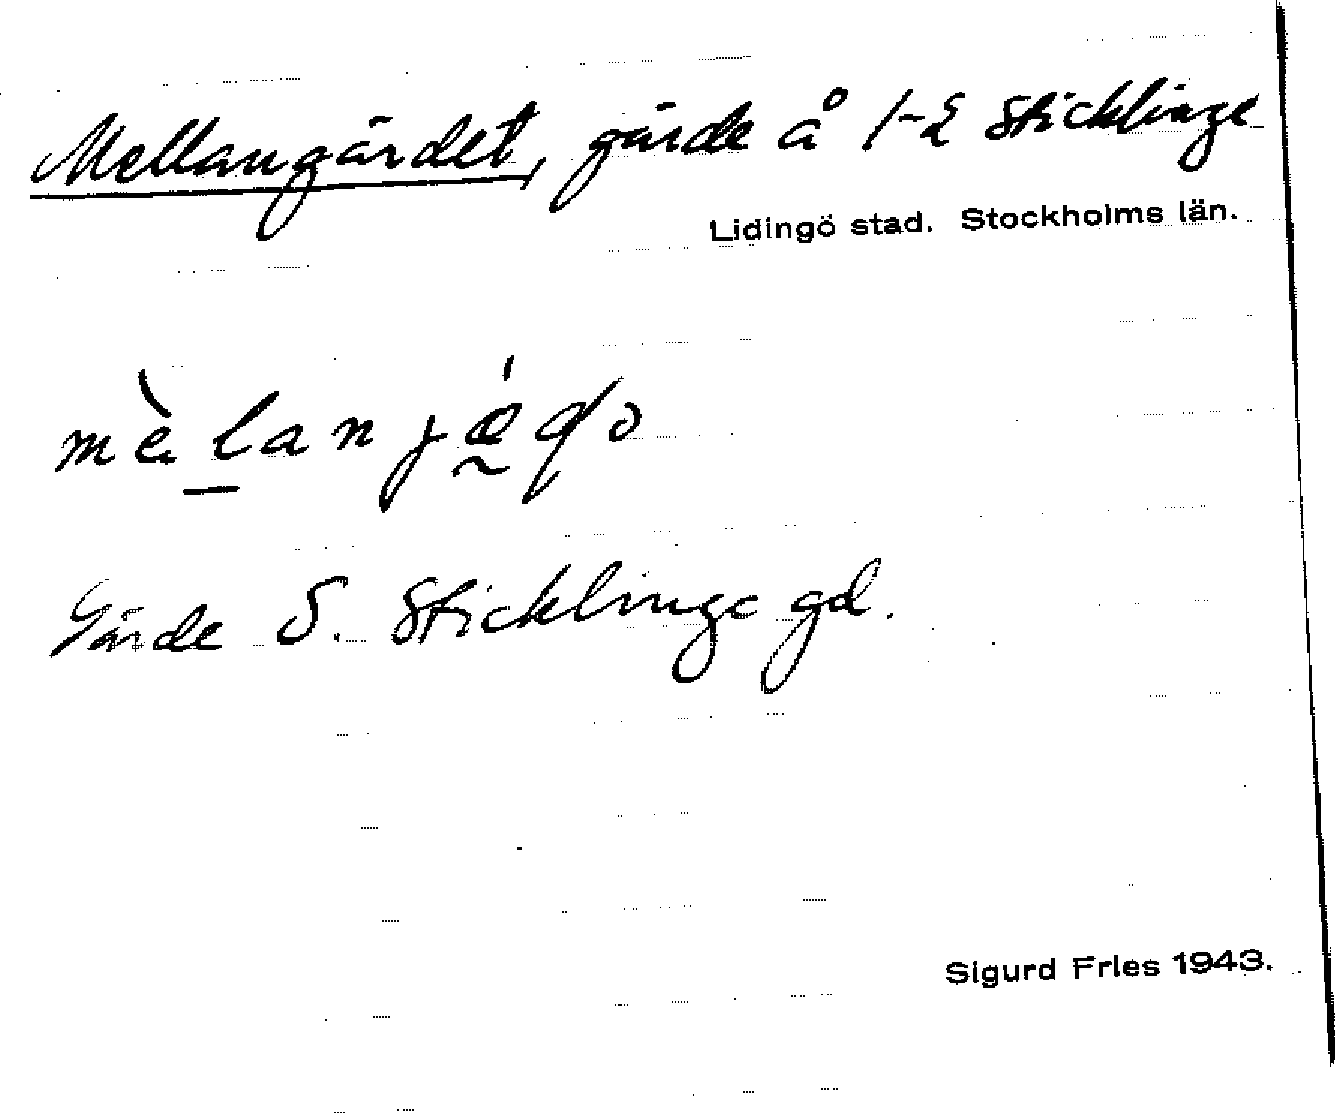 Mellangärdet, gärde å 1-2 Sticklinge
Lidingö stad. Stockholms län.
Gärde S. Sticklinge gd.
Sigurd Fries 1943.